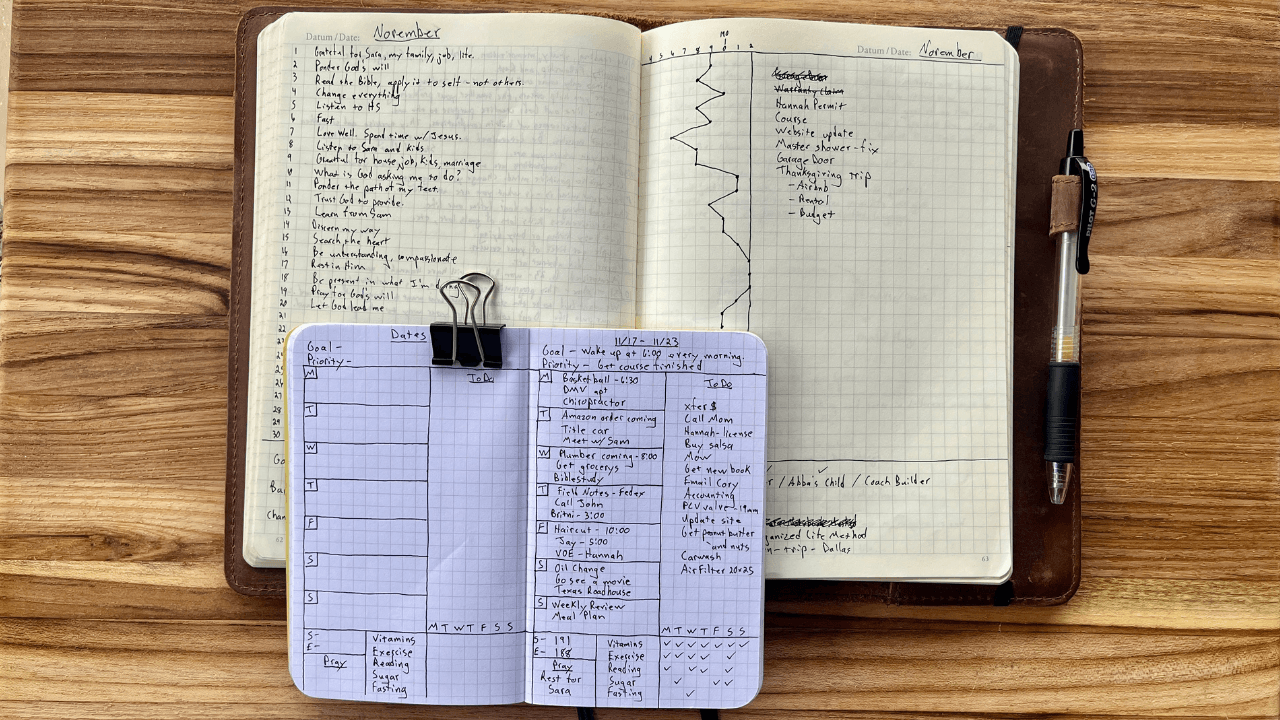 Datum / Date: November
1 Grateful for Sara, my family, job, life.
2 Ponder God's will
3 Read the Bible, apply it to self - not others.
4 Change everything
5 Listen to HS
6 Fast
7 Love Well. Spend time w/ Jesus.
8 Listen to Sara and kids
9 Grateful for house, job, kids, marriage
10 What is God asking me to do?
11 Ponder the path of my feet.
12 Trust God to provide.
13 Learn from Sam
14 Discern my way
15 Search the heart
16 Be understanding, compassionate
17 Rest in Him
18 Be present in what I'm doing
19 Pray for God's will
20 Let God lead me
21
22
27
28
29
30
Go
Ba
Chan
62
MO
4 5 6 7 8 9 0 1 2
Datum / Date: November
Warranty claim
Hannah Permit
Course
Website update
Master shower - fix
Garage Door
Thanksgiving trip
- Airbnb
- Rental
- Budget
r / Abba's Child / Coach Builder
ganized Life Method
n - trip - Dallas
63
PILOT G-2
Dates
Goal -
Priority -
M
ToDo
T
W
T
F
S
S
M T W T F S S
S-
E-
Pray
Vitamins
Exercise
Reading
Sugar
Fasting
11/17 - 11/23
Goal - Wake up at 6:00 every morning.
Priority - Get course finished
M Basketball - 6:30
DMV apt
Chiropractor
T Amazon order coming
Title car
Meet w/ Sam
W Plumber coming - 8:00
Get grocerys
Biblestudy
T Field Notes - Fedex
Call John
Britni - 3:00
F Haircut - 10:00
Jay - 5:00
VOE - Hannah
S Oil Change
Go see a movie
Texas Roadhouse
S Weekly Review
Meal Plan
ToDo
xfer $
Call Mom
Hannah - license
Buy salsa
Mow
Get new book
Email Cory
Accounting
PCV valve - 19am
Update site
Get peanut butter
and nuts
Carwash
Air Filter 20x25
M T W T F S S
S- 191
E- 188
Pray
Rest for
Sara
Vitamins ✓ ✓ ✓ ✓ ✓ ✓ ✓
Exercise ✓ ✓ ✓ ✓ ✓
Reading ✓ ✓ ✓ ✓
Sugar ✓ ✓ ✓
Fasting ✓